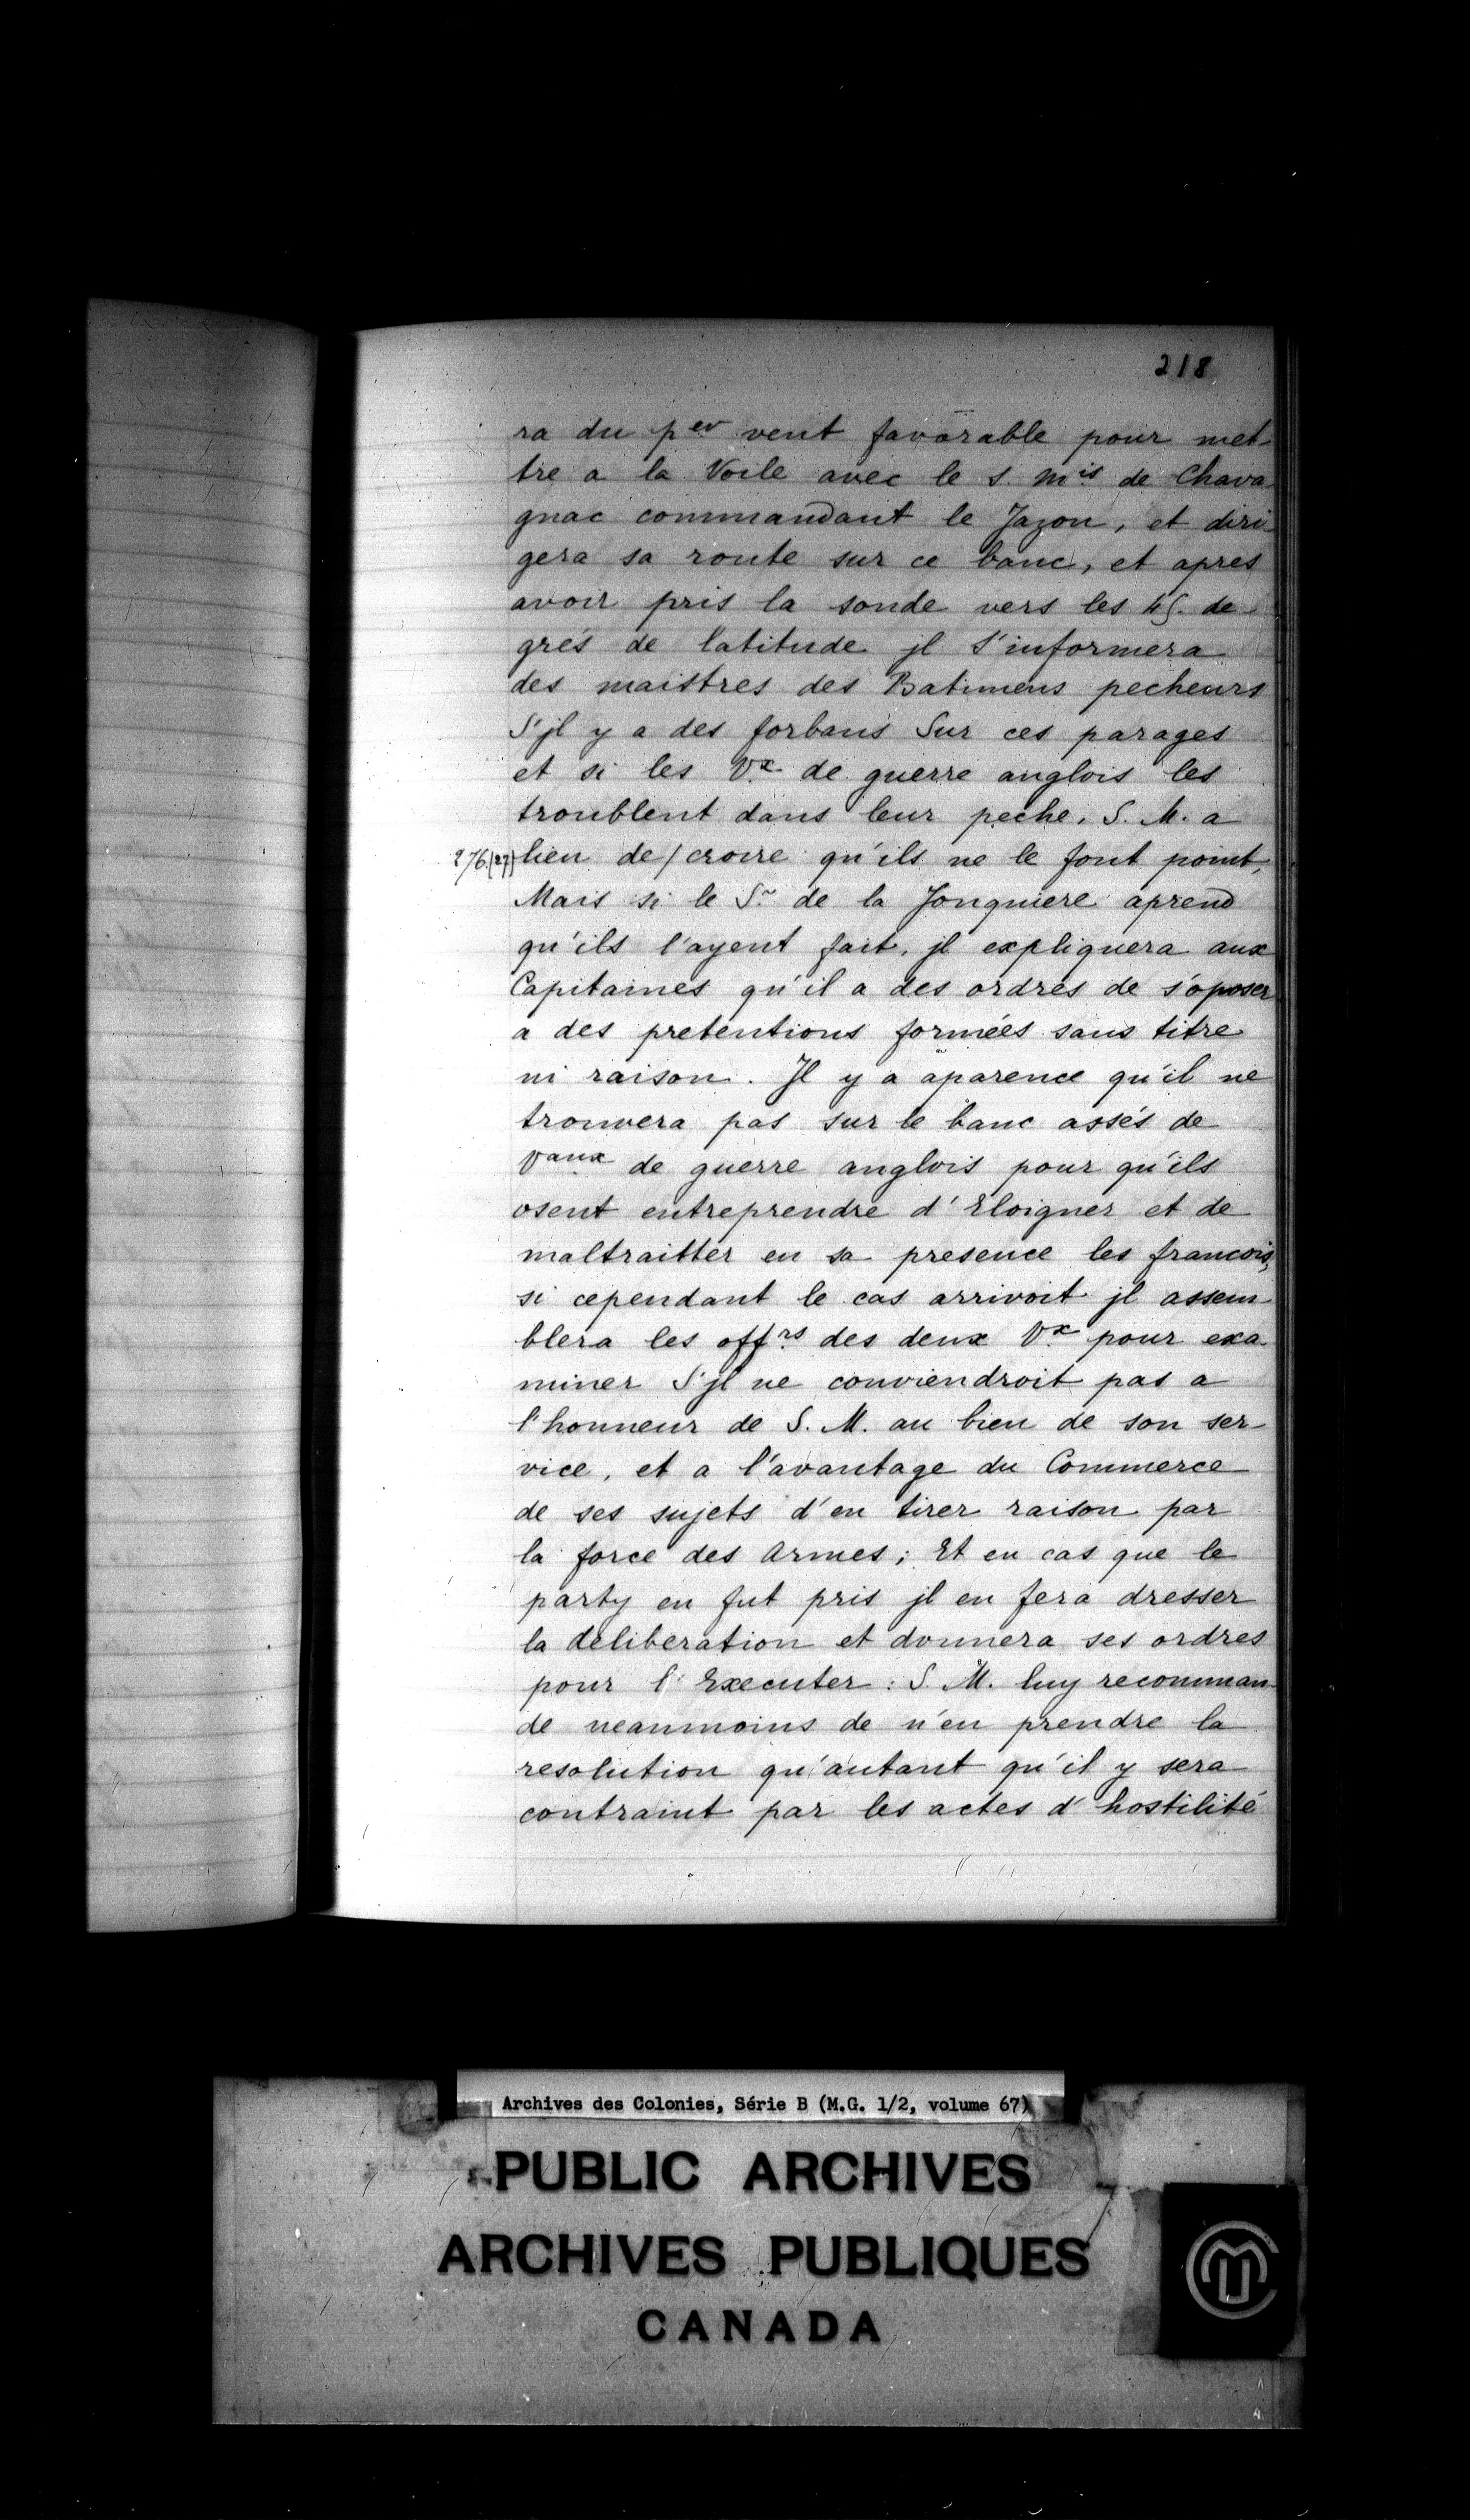 218
ra du p.er vent favorable pour met-
tre a la Voile avec le s. M.is de Chava-
gnac commandant le Jazon, et diri-
gera sa route sur ce banc, et apres
avoir pris la sonde vers les 45. de-
grés de latitude jl s'informera
des maistres des Batimens pecheurs
S'jl y a des forbans Sur ces parages
et si les V.x de guerre anglois les
troublent dans leur peche. S. M. a
276.(27) lieu de/croire qu'ils ne le font point,
Mais si le S.r de la Jonquiere aprend
qu'ils l'ayent fait, jl expliquera aux
Capitaines qu'il a des ordres de s'oposer
a des pretentions formées sans titre
ni raison. Jl y a aparence qu'il ne
trouvera pas sur le banc assés de
V.aux de guerre anglois pour qu'ils
osent entreprendre d'Eloigner et de
maltraitter en sa presence les francois,
si cependant le cas arrivoit jl assem-
blera les off.rs des deux V.x pour exa-
miner S'jl ne conviendroit pas a
l'honneur de S. M. au bien de son ser-
vice, et a l'avantage du Commerce
de ses sujets d'en tirer raison par
la force des Armes; Et en cas que le
party en fut pris jl en fera dresser
la deliberation et donnera ses ordres
pour l'Executer: S. M. luy recomman-
de neanmoins de n'en prendre la
resolution qu'autant qu'il y sera
contraint par les actes d'hostilité
Archives des Colonies, Série B (M.G. 1/2, volume 67)
PUBLIC ARCHIVES
ARCHIVES PUBLIQUES
CANADA